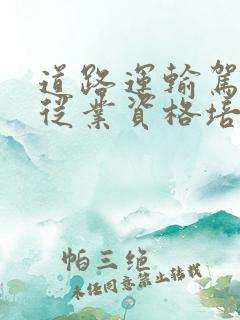 道路運輸駕
從業資格培
帕三绝
未任同意禁止转载